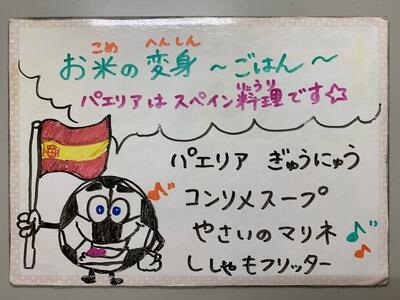 こめ へんしん
お米の変身 ～ごはん～
りょうり
パエリアはスペイン料理です☆
パエリア ぎゅうにゅう
コンソメスープ
やさいのマリネ
ししゃもフリッター